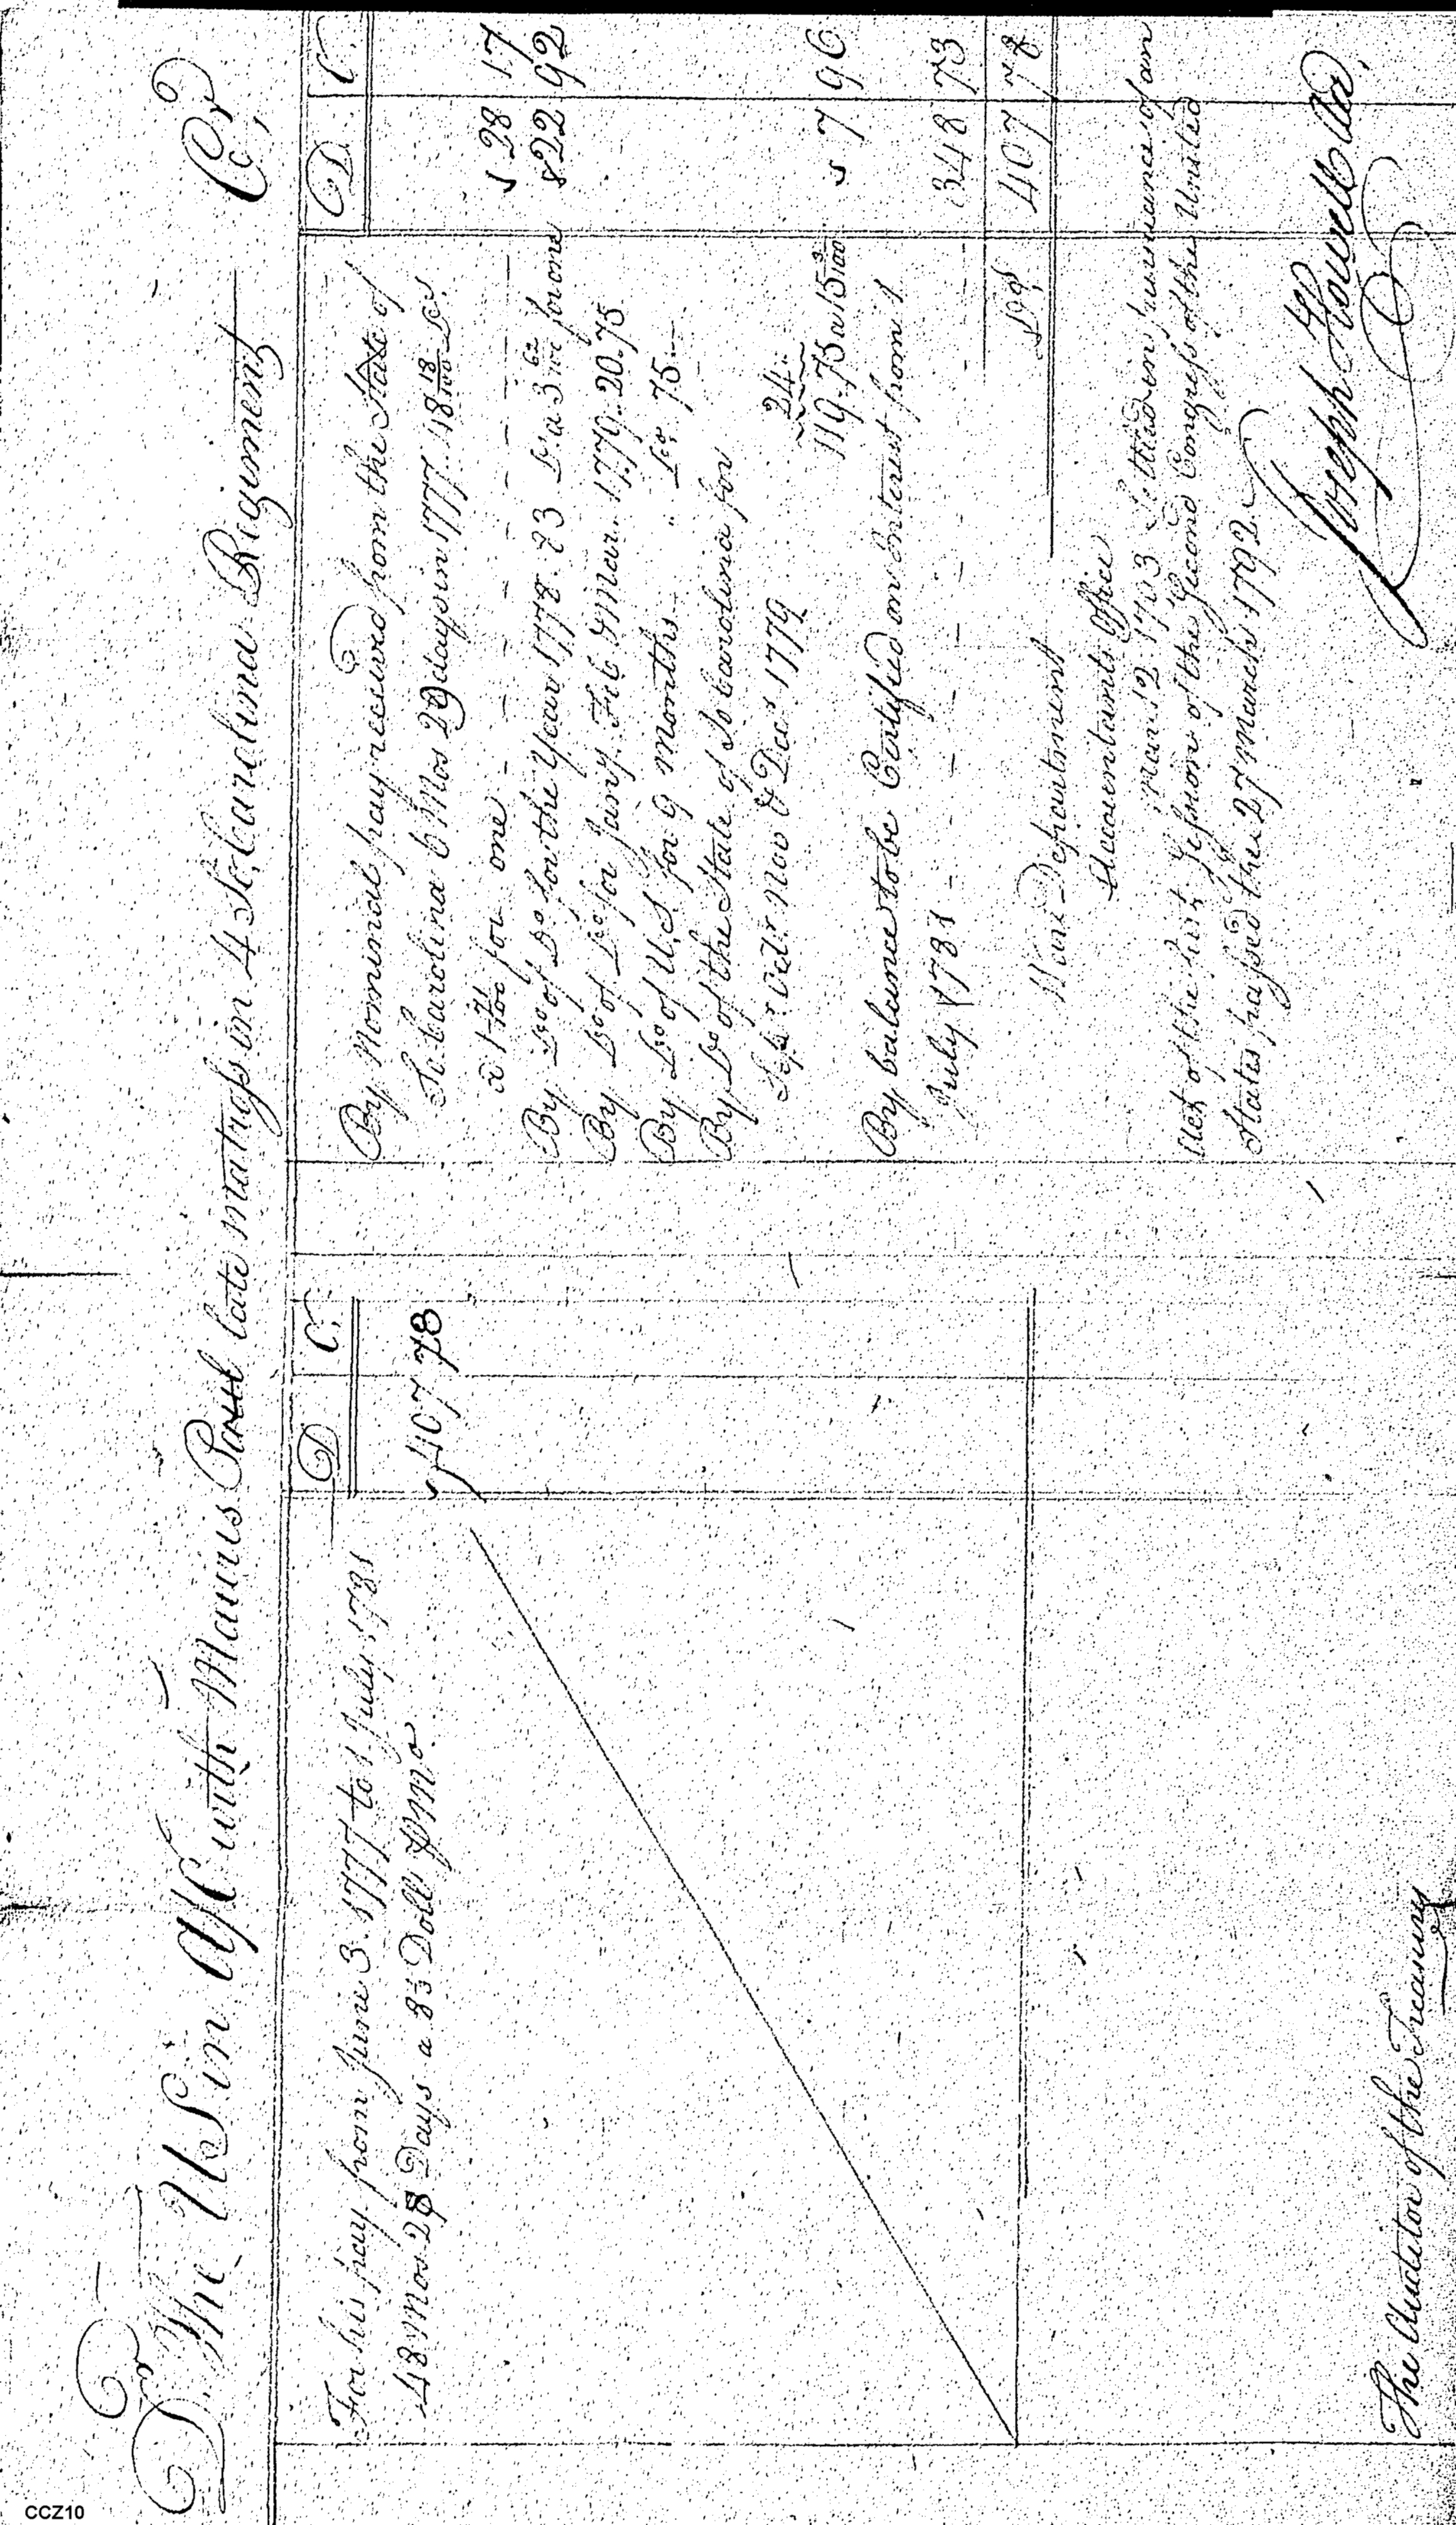 Dr. The US in A/C with Mauris late matross in 4 So. Carolina Regiment Cr.
D C.
For his pay from June 3. 1777 to 1 July 1781
48 Mos 28 Days a 8⅓ Doll ⅌ Mo
407 78
The Auditor of the Treasury
D. C.
By Nominal pay received from the State of
So. Carolina 6 Mos 29 days in 1777. 48 18/100 Do.
a 1 71/100 for one - - - - 28 17
By Do of Do for the Year 1778. 83 Do a 3 62/100 for one 22 92
By Do of Do for Jany. Feb & Mar. 1779. 20.75
By Do of U,S. for 9 months .. Do. 75..
By Do of the State of So Carolina for
Sepr. Octr. Nov & Decr 1779 24..
119.75 a 15 /100 7 96
By balance to be Certified on Interest from 1
July 1781 - - - - 348 73
407 78
War Department
Accountants Office
March 12 1793 Settled in pursuance of an
Act of the first Session of the Second Congress of the United
States passed the 27 March 1792.
Joseph Howell
CCZ10